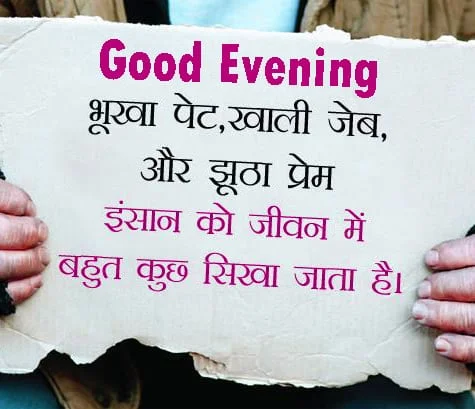 Good Evening
भूखा पेट,खाली जेब,
और झूठा प्रेम
इंसान को जीवन में
बहुत कुछ सिखा जाता है।